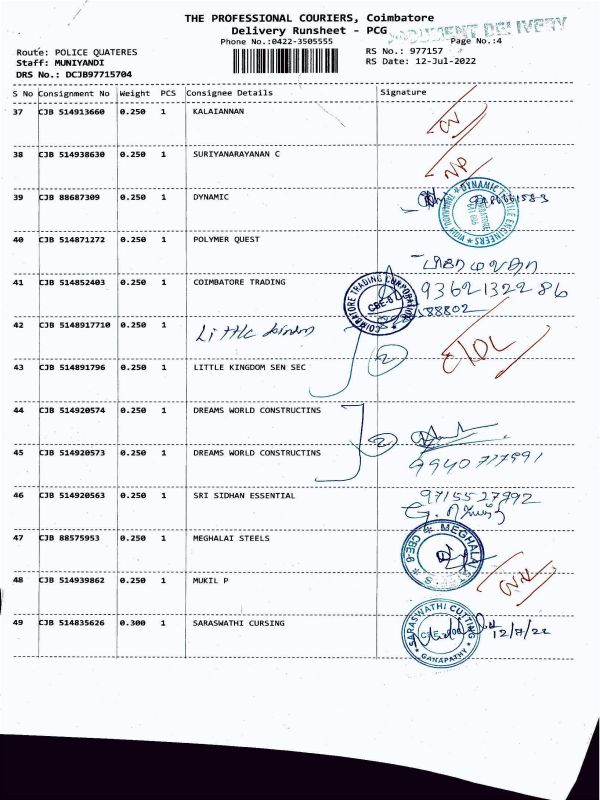 THE PROFESSIONAL COURIERS, Coimbatore
Delivery Runsheet - PCG
DOCUMENT DELIVERY
Phone No.:0422-3505555
Page No.:4
Route: POLICE QUATERES
RS No.: 977157
Staff: MUNIYANDI
RS Date: 12-Jul-2022
DRS No.: DCJB97715704
S No Consignment No Weight PCS Consignee Details Signature
37 CJB 514913660 0.250 1 KALAIANNAN
38 CJB 514938630 0.250 1 SURIYANARAYANAN C NP
39 CJB 88687309 0.250 1 DYNAMIC
DYNAMIC TEXTILE ENGINEERS
40 CJB 514871272 0.250 1 POLYMER QUEST
41 CJB 514852403 0.250 1 COIMBATORE TRADING 9362132286
COIMBATORE TRADING CORPORATION
CBE-6
588802
42 CJB 5148917710 0.250 1 Little
43 CJB 514891796 0.250 1 LITTLE KINGDOM SEN SEC
2
44 CJB 514920574 0.250 1 DREAMS WORLD CONSTRUCTINS
2
45 CJB 514920573 0.250 1 DREAMS WORLD CONSTRUCTINS 9940777991
46 CJB 514920563 0.250 1 SRI SIDHAN ESSENTIAL 9715527992
47 CJB 88575953 0.250 1 MEGHALAI STEELS
MEGHALAI
CBE-6
48 CJB 514939862 0.250 1 MUKIL P
49 CJB 514835626 0.300 1 SARASWATHI CURSING
SARASWATHI CUTTING
GANAPATHY
12/7/22